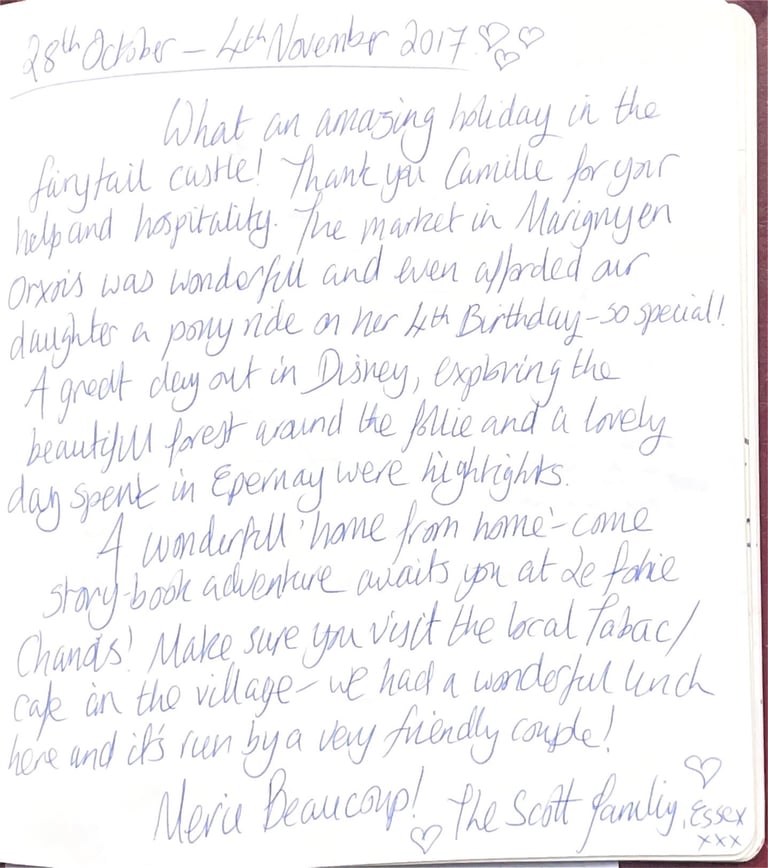 28th October – 4th November 2017 ♡♡♡
What an amazing holiday in the
fairytail castle! Thank you Camille for your
help and hospitality. The market in Marigny en
Orxois was wonderfull and even afforded our
daughter a pony ride on her 4th Birthday – so special!
A great day out in Disney, exploring the
beautifull forest around the follie and a lovely
day spent in Epernay were highlights.
A wonderfull 'home from home' – come
story-book adventure awaits you at Le folie
Make sure you visit the local Tabac/
cafe in the village – we had a wonderful lunch
here and it's run by a very friendly couple!
Merie Beaucoup! ♡ The Scott family, Essex ♡
xxx